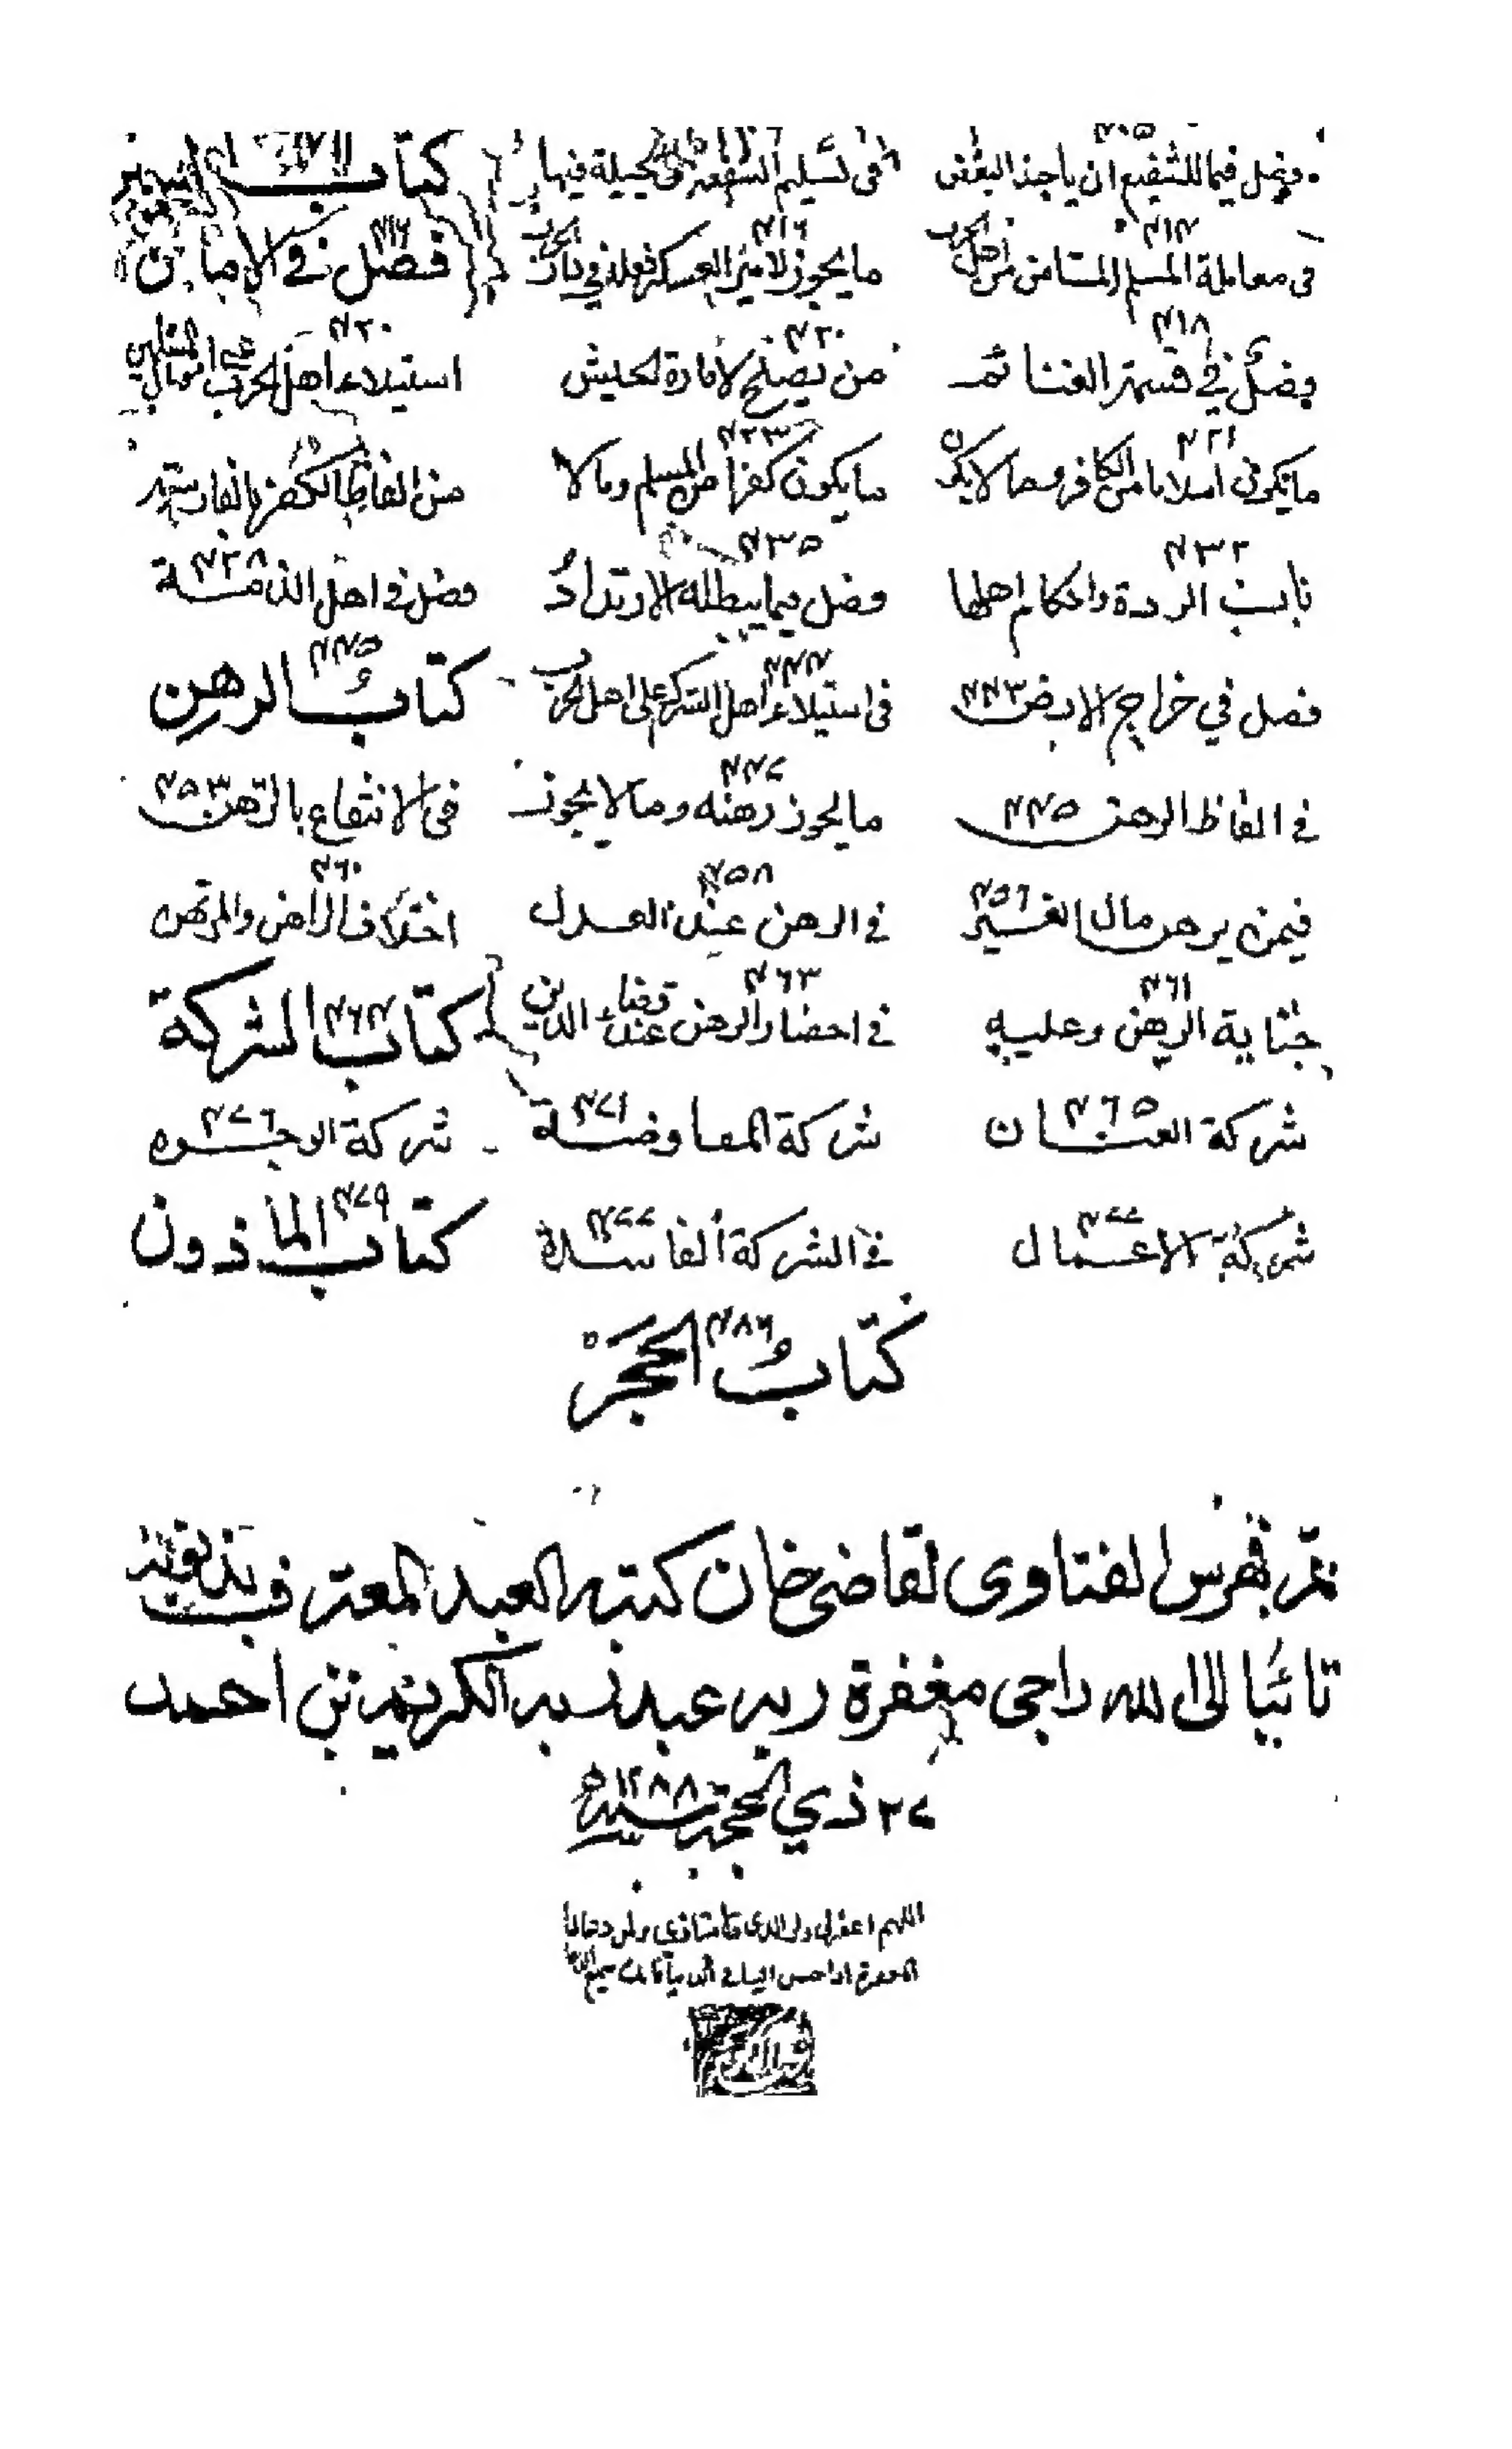 فصل فيما للشفيع ان ياخذ البعض ٤٠٥ فى تسليم الشفعة والحيلة فيها كتاب السير
فى معاملة المسلم المستامن من اهل الحرب ٤١٣ ما يجوز لامير العسكر فعله في دار الحرب ٤١٦ فصل فى الامان ٤١٦
فصل في قسمة الغنائم ٤١٨ من يصلح لامارة الجيش ٤٢٠ استيلاء اهل الحرب على اموال المسلمين ٤٢٠
ما يكون اسلاما من الكافر وما لا يكون ٤٢١ ما يكون كفرا من المسلم وما لا ٤٢٣ من الفاظ الكفر بالفارسية
باب الردة واحكام اهلها ٤٣٢ فصل فيما يبطله الارتداد ٤٣٥ فصل فى اهل الذمة ٤٣٨
فصل في خراج الارض ٤٤٣ فى استيلاء اهل الشرك على اهل الحرب ٤٤٤ كتاب الرهن ٤٤٥
في الفاظ الرهن ٤٤٥ ما يجوز رهنه وما لا يجوز ٤٤٧ فى الانتفاع بالرهن ٤٥٣
فيمن يرهن مال الغير ٤٥٦ في الرهن عند العدل ٤٥٨ اختلاف الراهن والمرتهن ٤٦٠
جناية الرهن وعليه ٤٦١ في احضار الرهن عند قضاء الدين ٤٦٣ كتاب الشركة ٤٦٤
شركة العنان ٤٦٥ شركة المفاوضة ٤٧١ شركة الوجوه ٤٧٦
شركة الاعمال ٤٧٧ في الشركة الفاسدة ٤٧٧ كتاب الماذون ٤٧٩
كتاب الحجر ٤٨٦
تم فهرس الفتاوى لقاضى خان كتبه العبد المعترف بذنوبه
تائبا الى الله راجى مغفرة ربه عبده عبد الكريم بن احمد
٢٧ ذي الحجة سنة ١٢٨٨
اللهم اغفر لى ولوالدى ولاستاذي ولمن دعا لنا